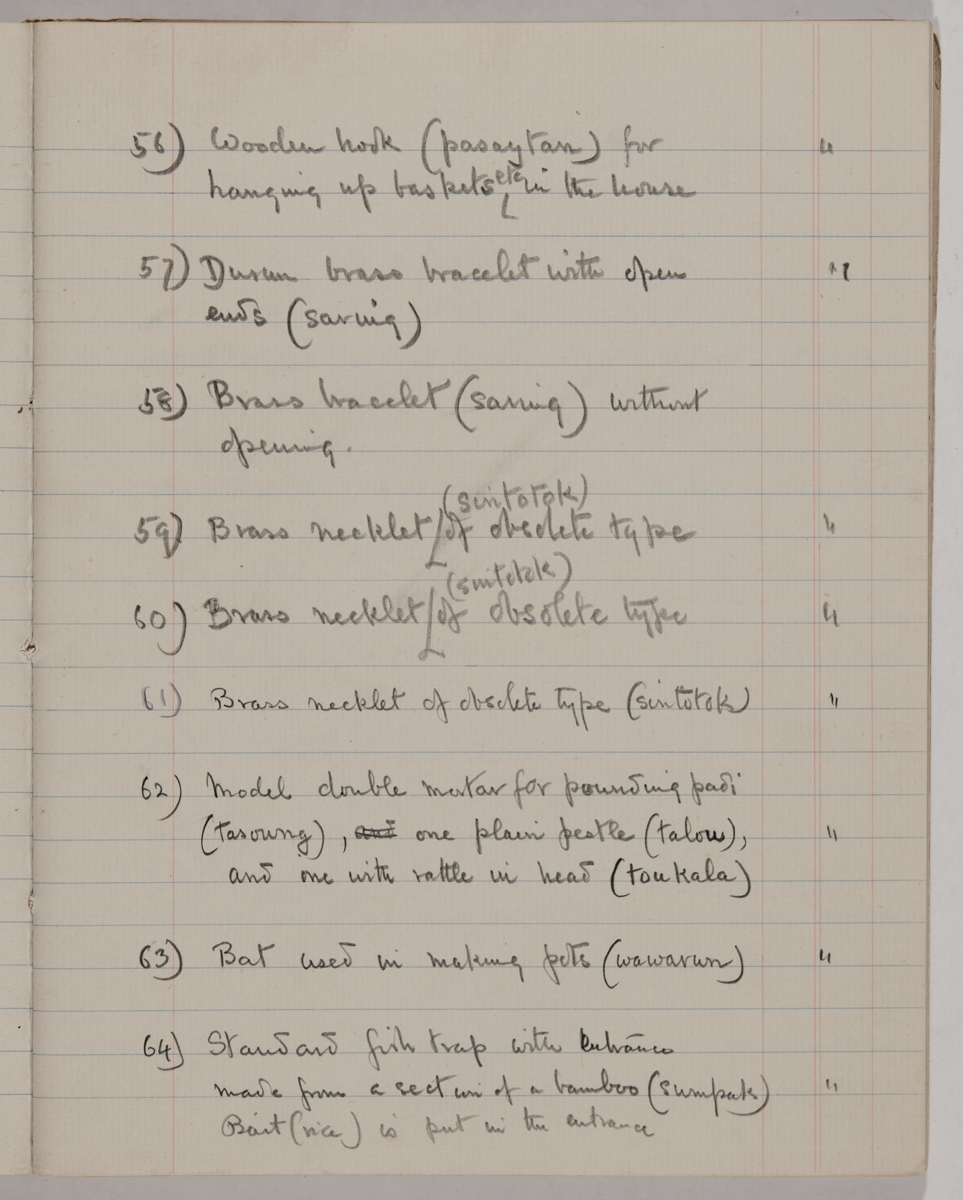 56) Wooden hook (pasaytan) for "
hanging up baskets etc in the house
57) Dusun brass bracelet with open "
ends (saring)
58) Brass bracelet (saring) without
opening.
(sintotok)
59) Brass necklet of obsolete type "
(sintotok)
60) Brass necklet of obsolete type "
61) Brass necklet of obsolete type (sintotok) "
62) Model double mortar for pounding padi
(tasoung), and one plain pestle (talou), "
and one with rattle in head (toukala)
63) Bat used in making pots (wawarun) "
64) Standard fish trap with entrance
made from a section of a bamboo (sumpak) "
Bait (rice) is put in the entrance